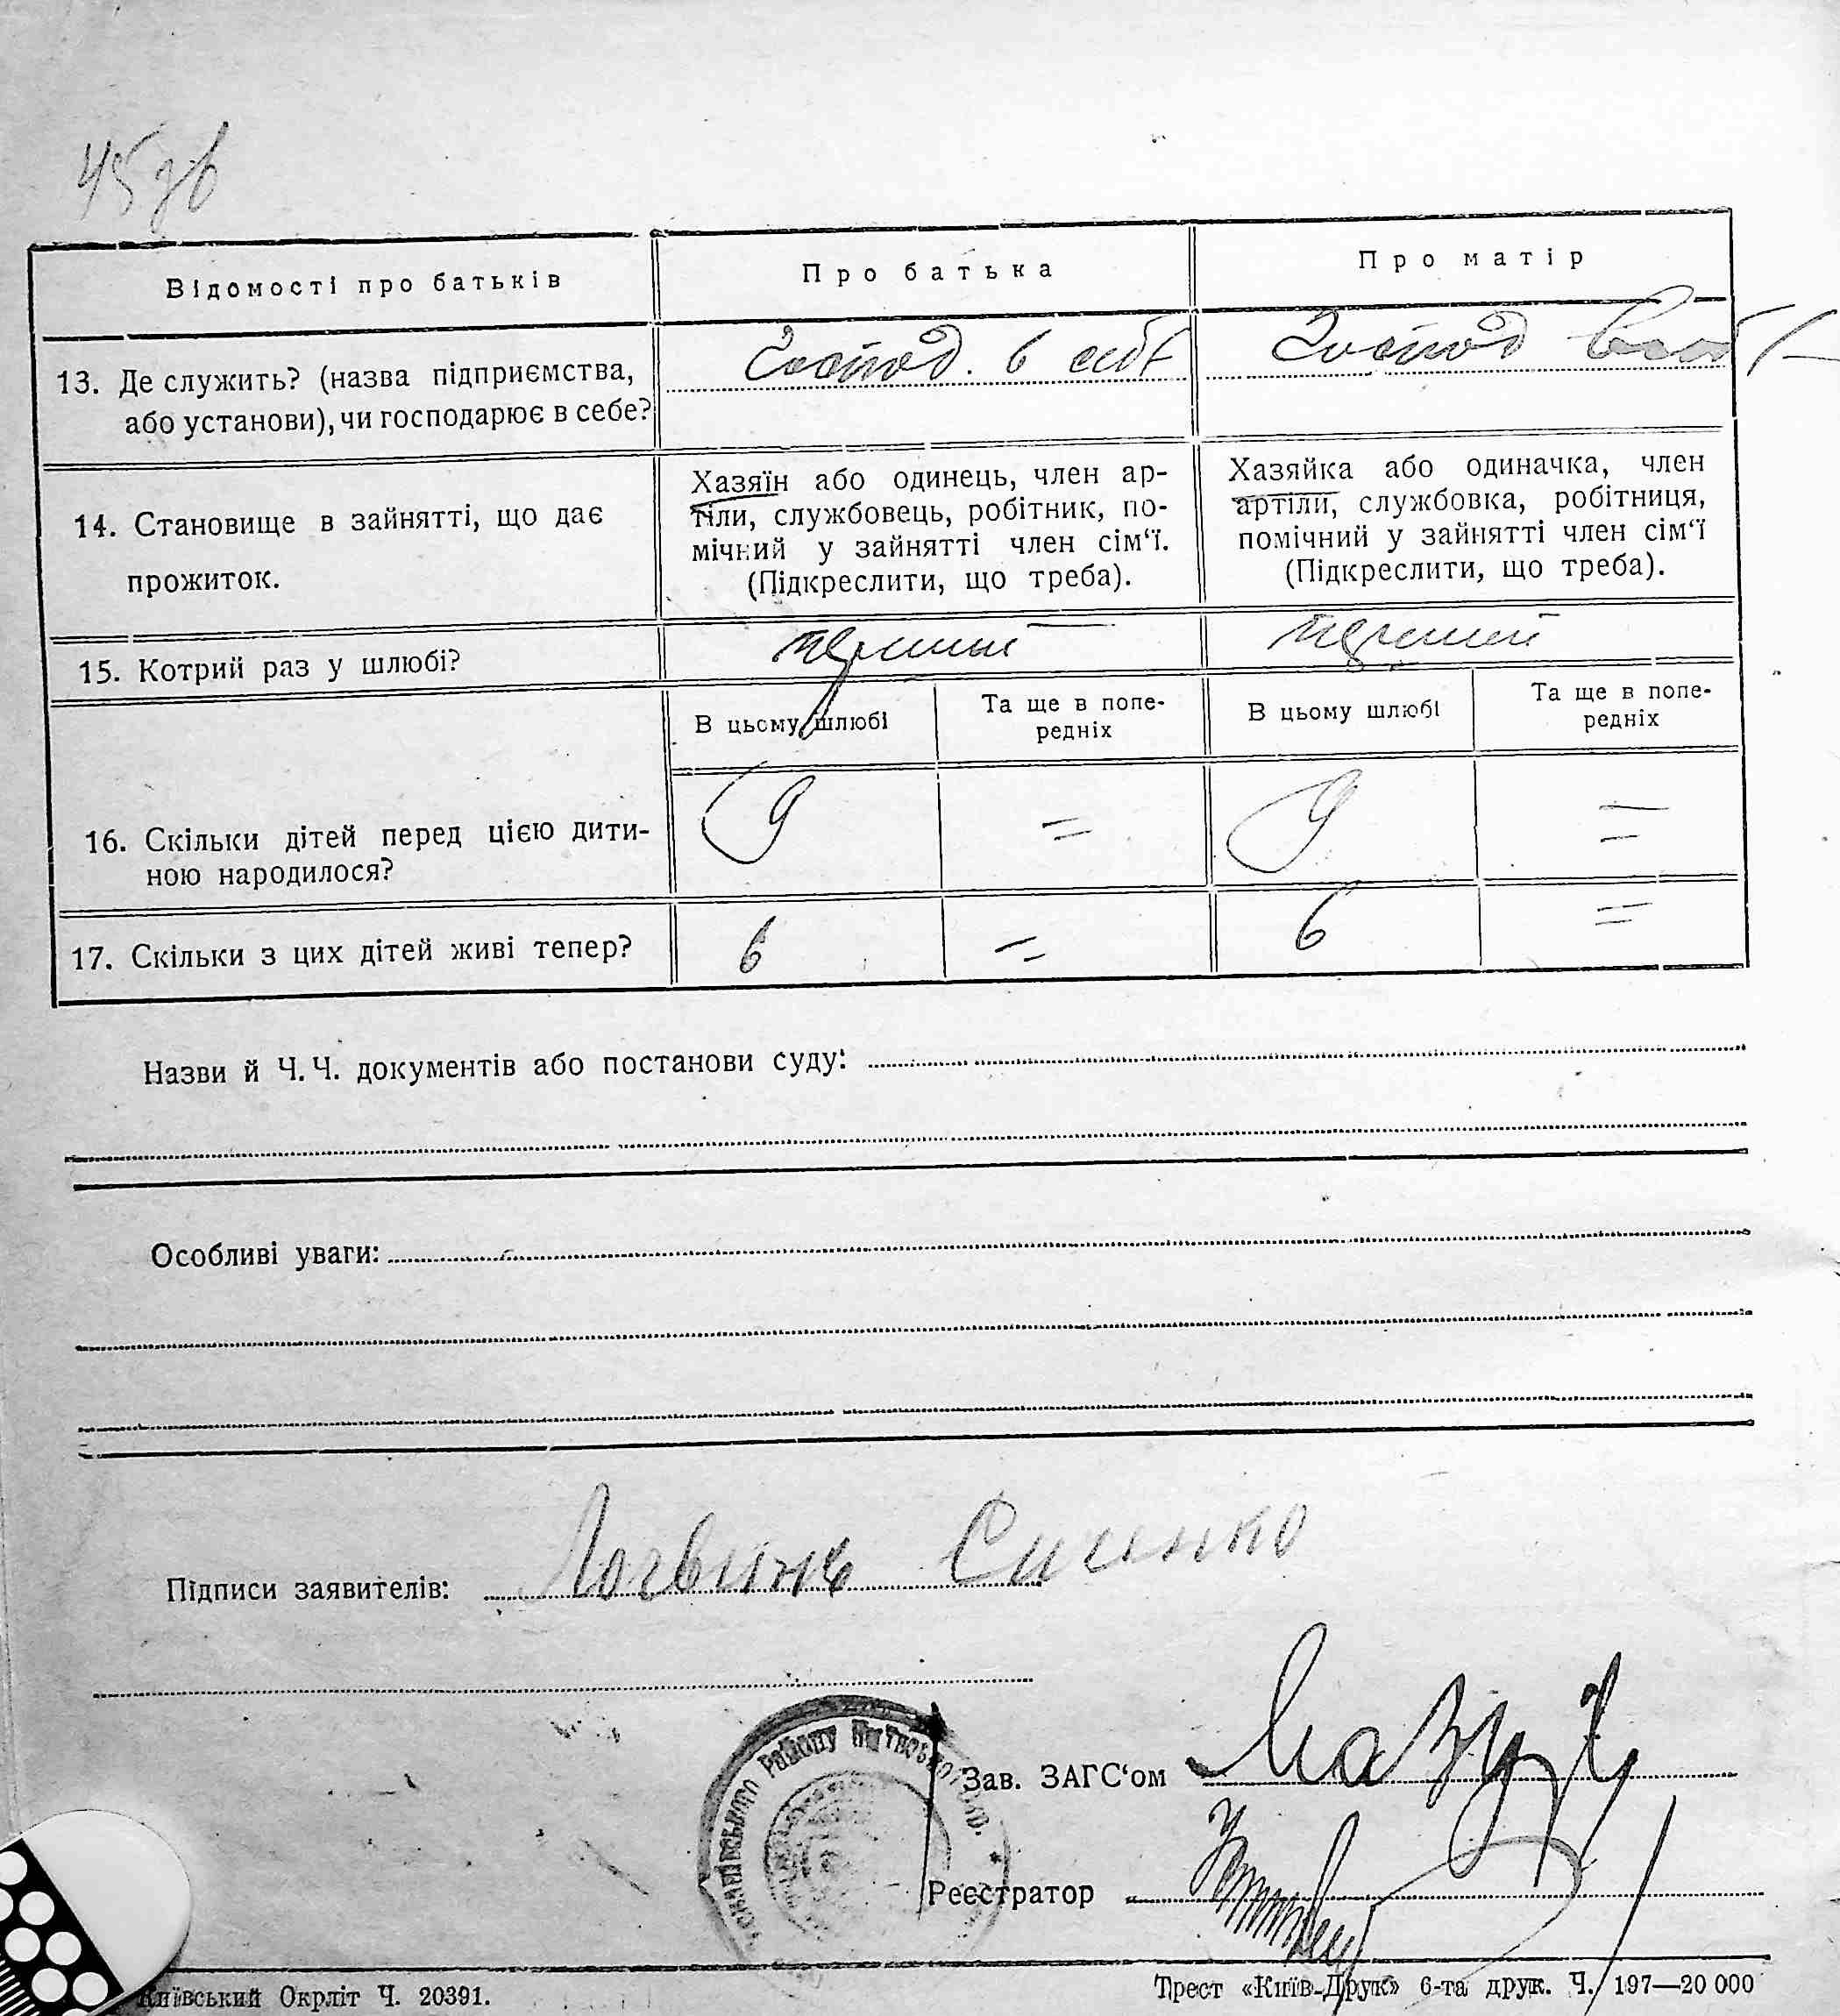 45 зв
Відомості про батьків
Про батька
Про матір
13. Де служить? (назва підприємства,
або установи), чи господарює в себе?
Господ. в себе
Господ в себе
14. Становище в зайнятті, що дає
прожиток.
Хазяїн або одинець, член ар-
тіли, службовець, робітник, по-
мічний у зайнятті член сім‘ї.
(Підкреслити, що треба).
Хазяйка або одиначка, член
артіли, службовка, робітниця,
помічний у зайнятті член сім‘ї
(Підкреслити, що треба).
15. Котрий раз у шлюбі?
перший
перший
В цьому шлюбі
Та ще в попе-
редніх
В цьому шлюбі
Та ще в попе-
редніх
16. Скільки дітей перед цією дити-
ною народилося?
9
=
9
=
17. Скільки з цих дітей живі тепер?
6
=
6
=
Назви й Ч. Ч. документів або постанови суду:
Особливі уваги:
Підписи заявителів: Логвинъ Сисенко
Району
Зав. ЗАГС‘ом Мазур
Реєстратор
Київський Окрліт Ч. 20391.
Трест «Київ-Друк» 6-та друк. Ч. 197—20 000